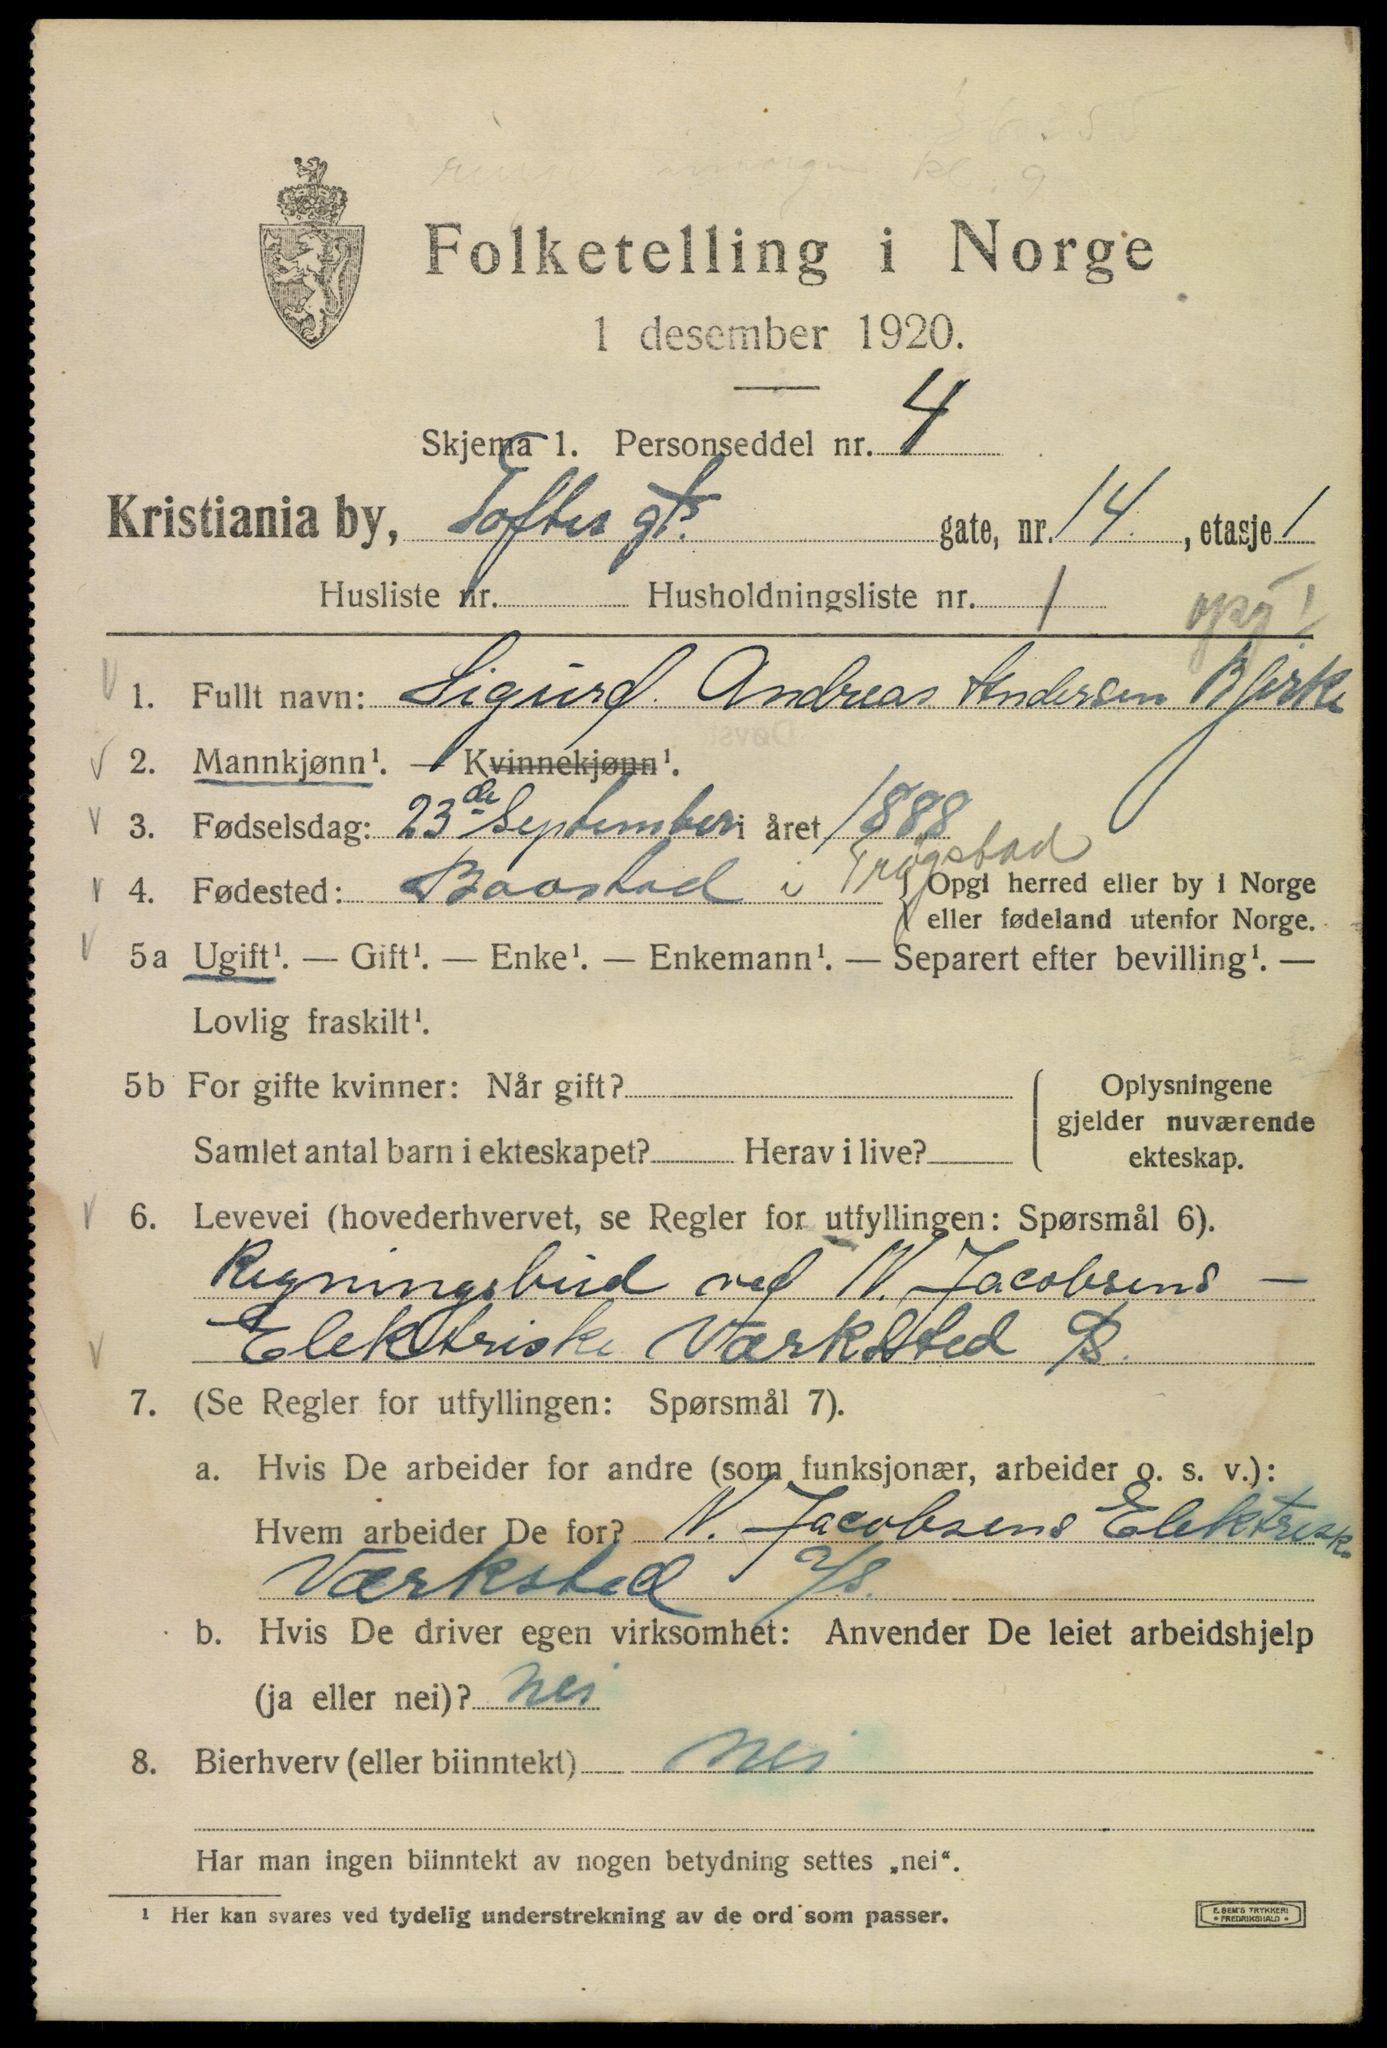 kl. 9
Folketelling i Norge
1 desember 1920.
Skjema 1. Personseddel nr. 4
Kristiania by, Toftes gt. gate, nr. 14. , etasje 1
Husliste nr. Husholdningsliste nr. 1
1. Fullt navn: Sigurd Andreas Andersen Bjerke
2. Mannkjønn¹. — Kvinnekjønn¹.
3. Fødselsdag: 23de September i året 1888
4. Fødested: Baastad i Trøgstad { Opgi herred eller by i Norge
eller fødeland utenfor Norge.
5a Ugift¹. — Gift¹. — Enke¹. — Enkemann¹. — Separert efter bevilling¹. —
Lovlig fraskilt¹.
5b For gifte kvinner: Når gift? { Oplysningene
gjelder nuværende
Samlet antal barn i ekteskapet? Herav i live? ekteskap.
6. Levevei (hovederhvervet, se Regler for utfyllingen: Spørsmål 6).
Regningsbud ved N. Jacobsens —
Elektriske Værksted
7. (Se Regler for utfyllingen: Spørsmål 7).
a. Hvis De arbeider for andre (som funksjonær, arbeider o. s. v.):
Hvem arbeider De for? N. Jacobsens Elektriske
Værksted A/S.
b. Hvis De driver egen virksomhet: Anvender De leiet arbeidshjelp
(ja eller nei)? nei
8. Bierhverv (eller biinntekt) nei
Har man ingen biinntekt av nogen betydning settes „nei“.
¹ Her kan svares ved tydelig understrekning av de ord som passer.
E. SEM'S TRYKKERI
• FREDRIKSHALD •